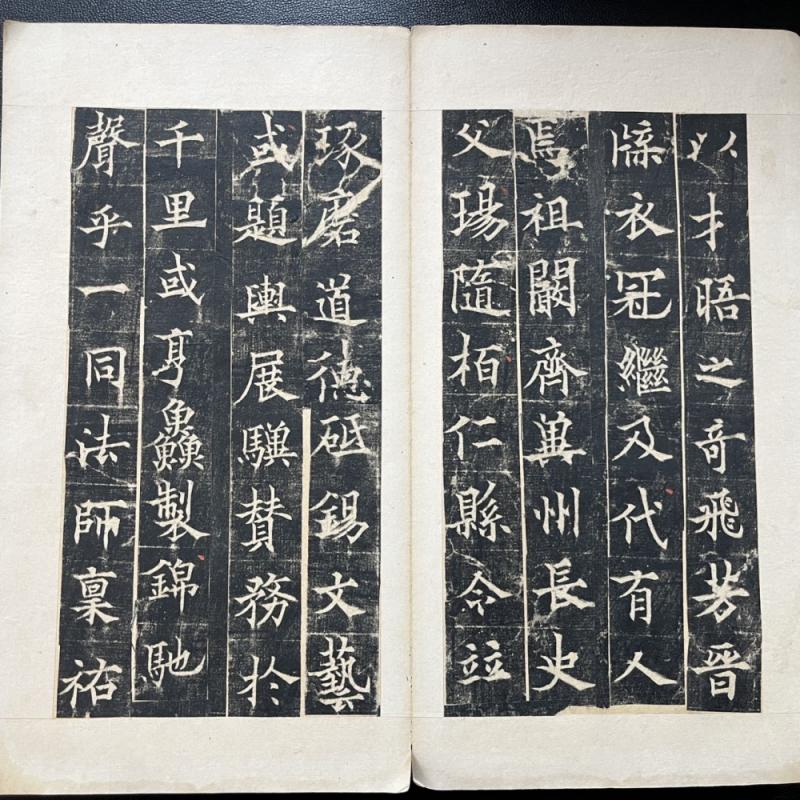 以才晤之奇飛芳晉
牒衣冠繼及代有人
焉祖闞齊兗州長史
父瑒隨栢仁縣令竝
琢磨道德砥錫文藝
或題輿展驥贊務於
千里或亨鱻製錦馳
聲乎一同法師稟祐